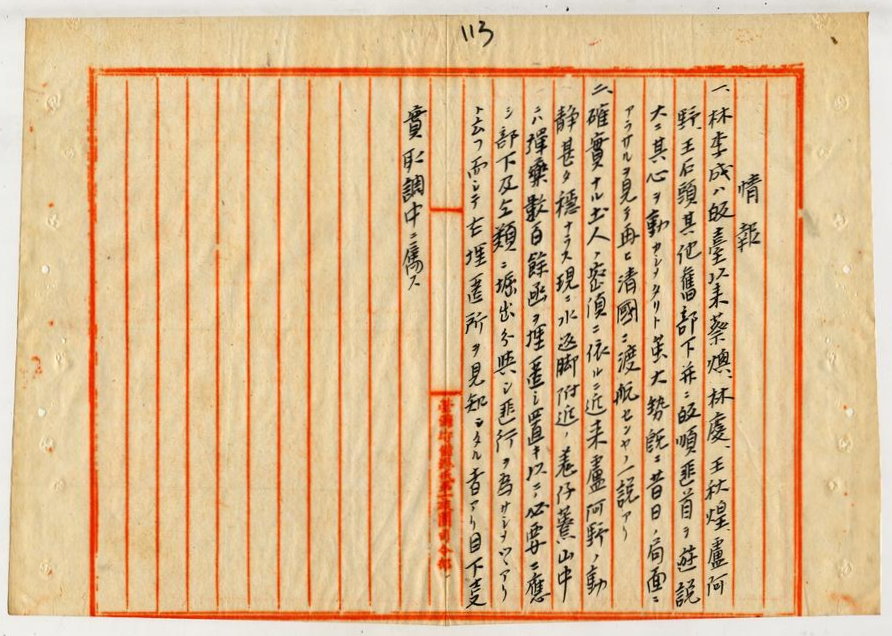 113
情報
一、林李成ハ皈臺以来蔡愩、林慶、王秋煌、盧阿
野、王石頭其他舊部下并ニ皈順匪首ヲ遊説
大ニ其心ヲ動カシメタリト茧大勢既ニ昔日ノ局面ニ
アラサルヲ見テ再ヒ清國ニ渡航センヤノ一説アリ
二、確實ナル土人ノ密偵ニ依ルニ近来盧阿野ノ動
静甚タ穏ナラス現ニ水返脚附近ノ姜仔藔山中
ニハ弾藥数百餘函ヲ埋匿シ置キ以ニ必要ニ應
シ部下及ヒ類ニ堀出分與シ匪行ヲ為サシメツヽアリ
ト云フ而シテ右埋匿所ヲ見知シタル者アリ目下
實取調中ニ属ス
臺灣守備混成第一旅團司令部